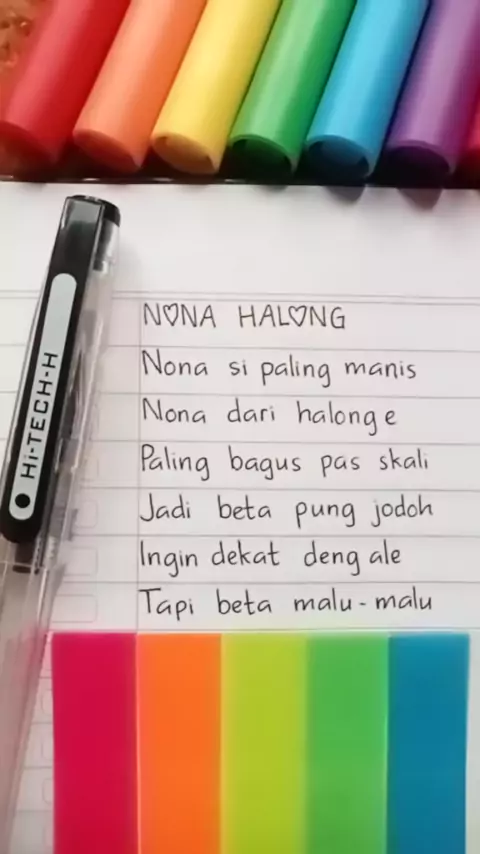 Hi-TECH-H
N♡NA HAL♡NG
Nona si paling manis
Nona dari halong e
Paling bagus pas skali
Jadi beta pung jodoh
Ingin dekat deng ale
Tapi beta malu-malu